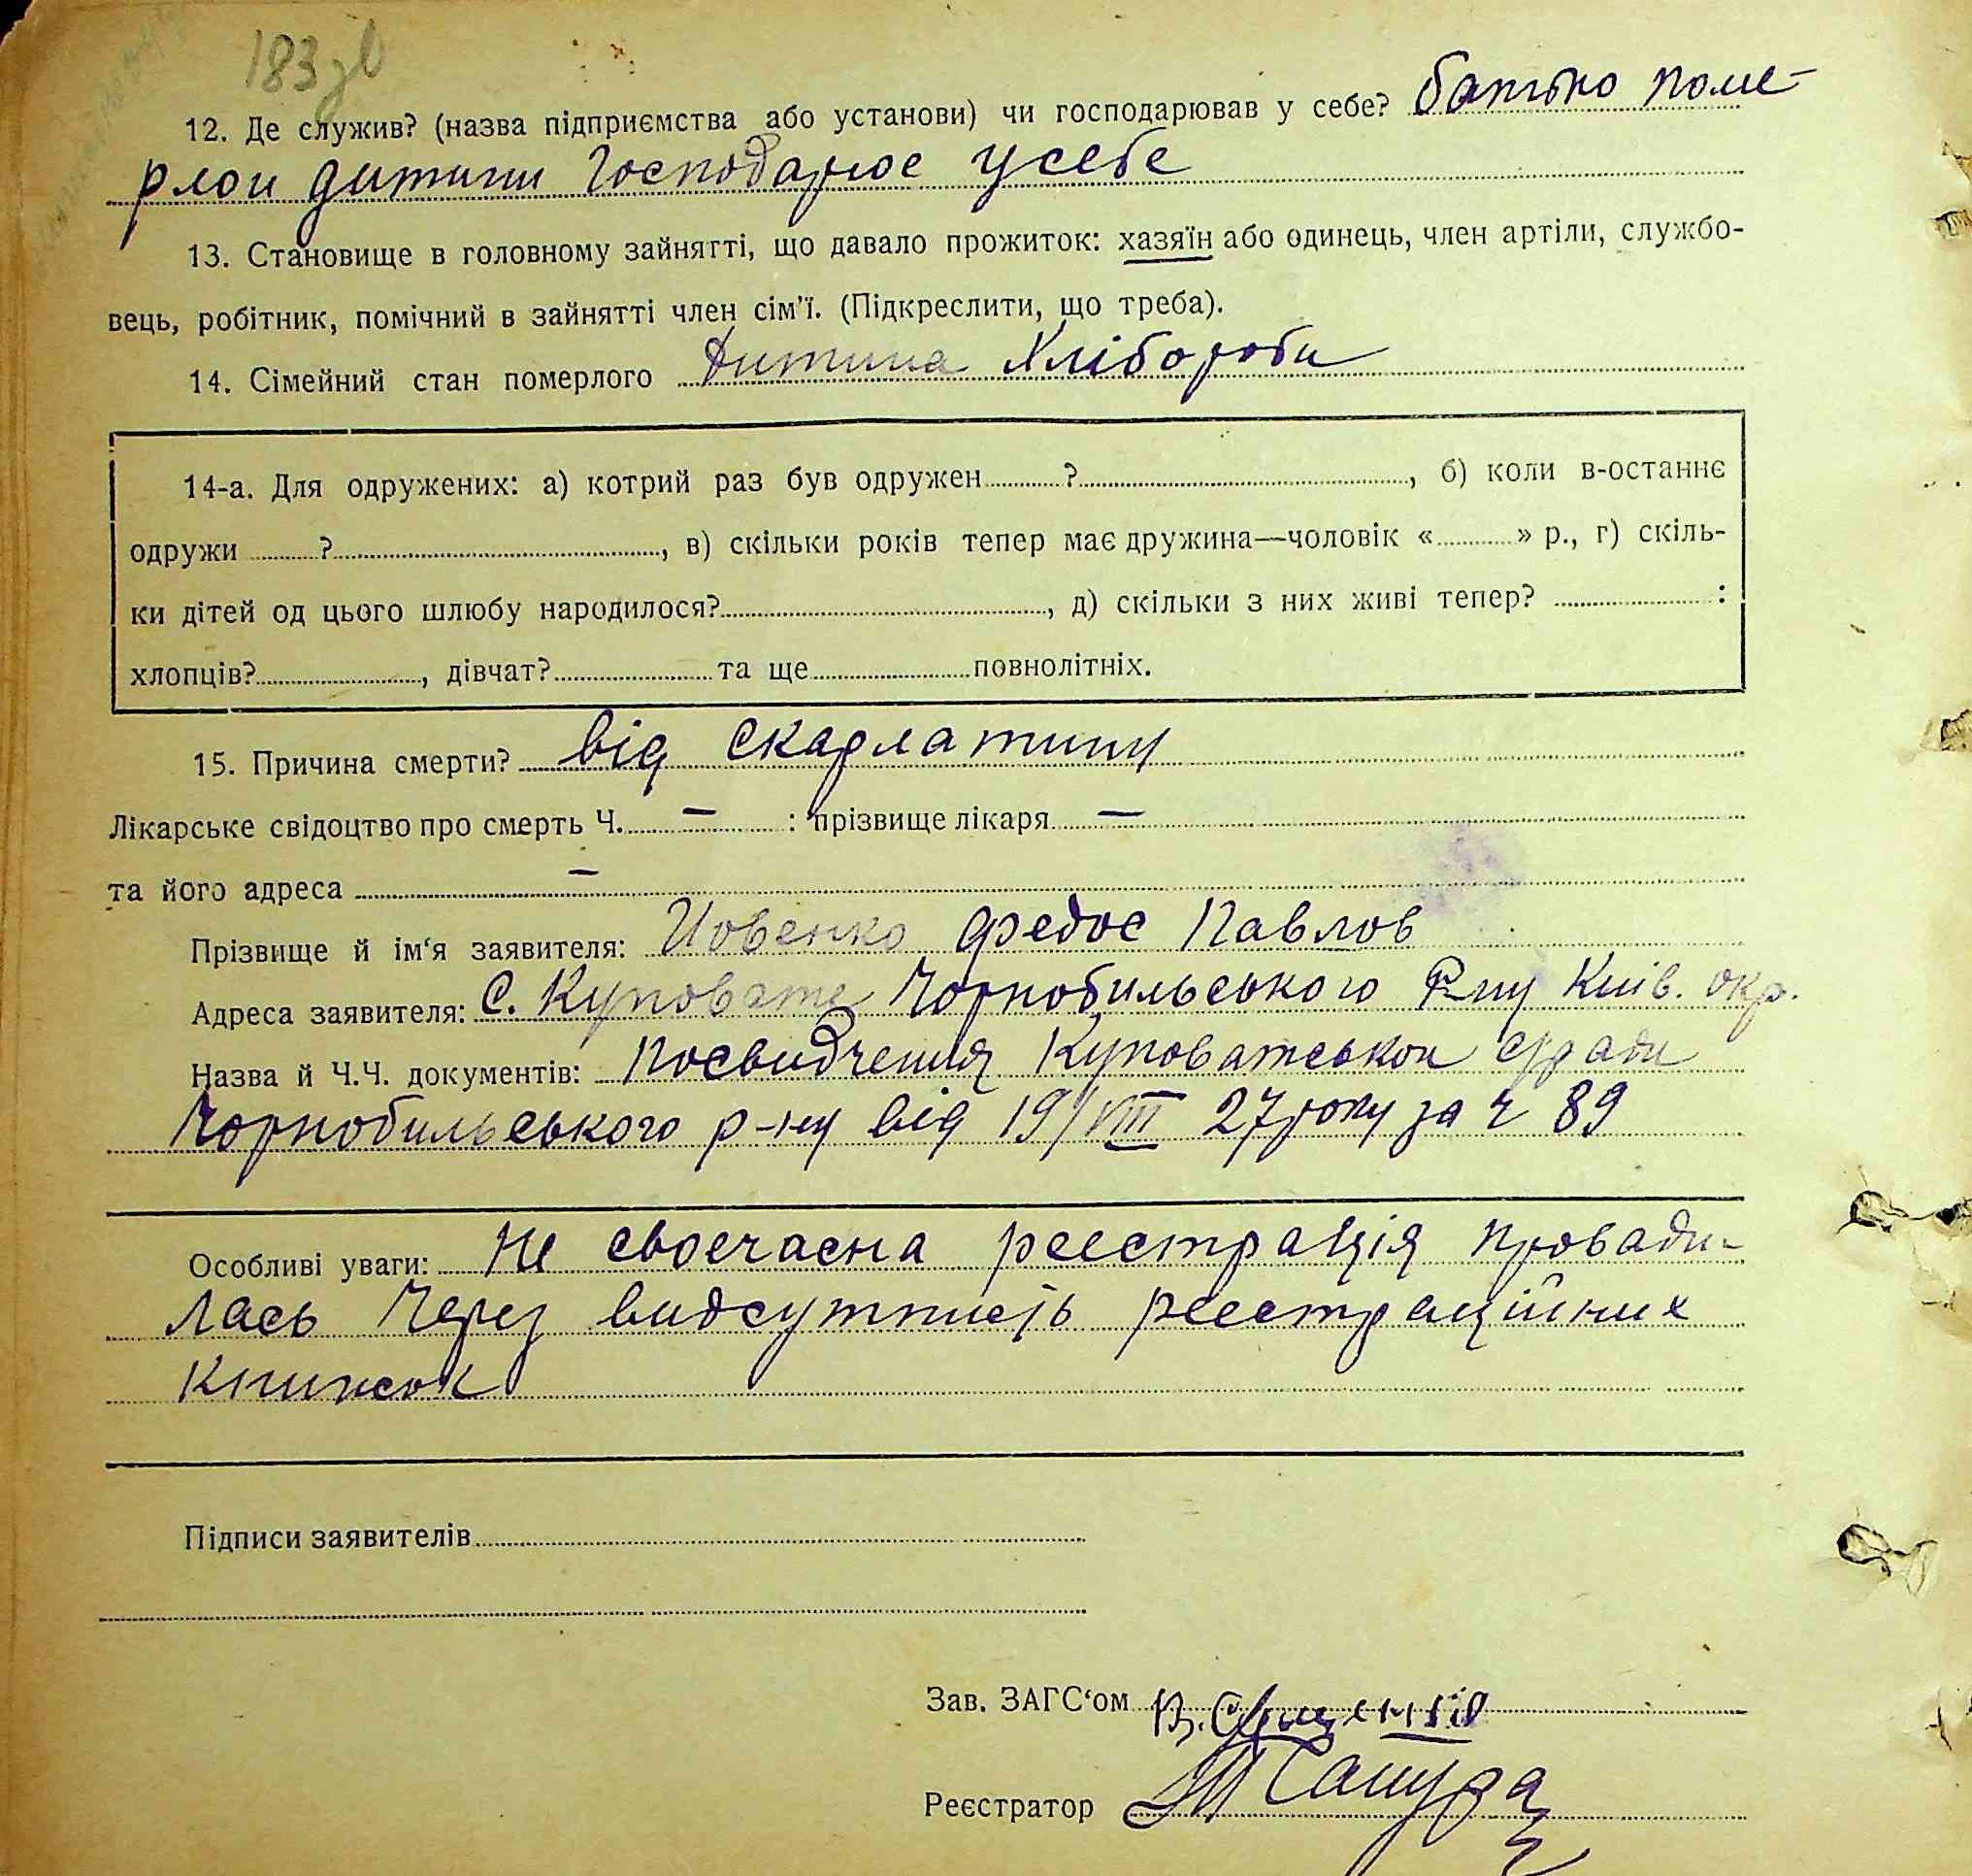 183зв
12. Де служив? (назва підприємства або установи) чи господарював у себе? батько поме-
рлои дитини Господарює усебе
13. Становище в головному зайнятті, що давало прожиток: хазяїн або одинець, член артіли, службо-
вець, робітник, помічний в зайнятті член сім'ї. (Підкреслити, що треба).
14. Сімейний стан померлого Дитина Хлібороба
14-а. Для одружених: а) котрий раз був одружен ? , б) коли в-останнє
одружи ? , в) скільки років тепер має дружина—чоловік « » р., г) скіль-
ки дітей од цього шлюбу народилося? , д) скільки з них живі тепер? :
хлопців? , дівчат? та ще повнолітніх.
15. Причина смерти? від скарлатини
Лікарське свідоцтво про смерть Ч. — : прізвище лікаря —
та його адреса —
Прізвище й ім'я заявителя: Йовенко Федос Павлов
Адреса заявителя: С. Куповате Чорнобильського Р-ну Київ. окр.
Назва й Ч.Ч. документів: Посвидчення Куповатськои с/ради
Чорнобильського р-ну від 19/VIII 27 року за ч 89
Особливі уваги: Не своєчасна реєстрація провади-
лась Через видсутність реєстраційних
книжок
Підписи заявителів
Зав. ЗАГС'ом
Реєстратор